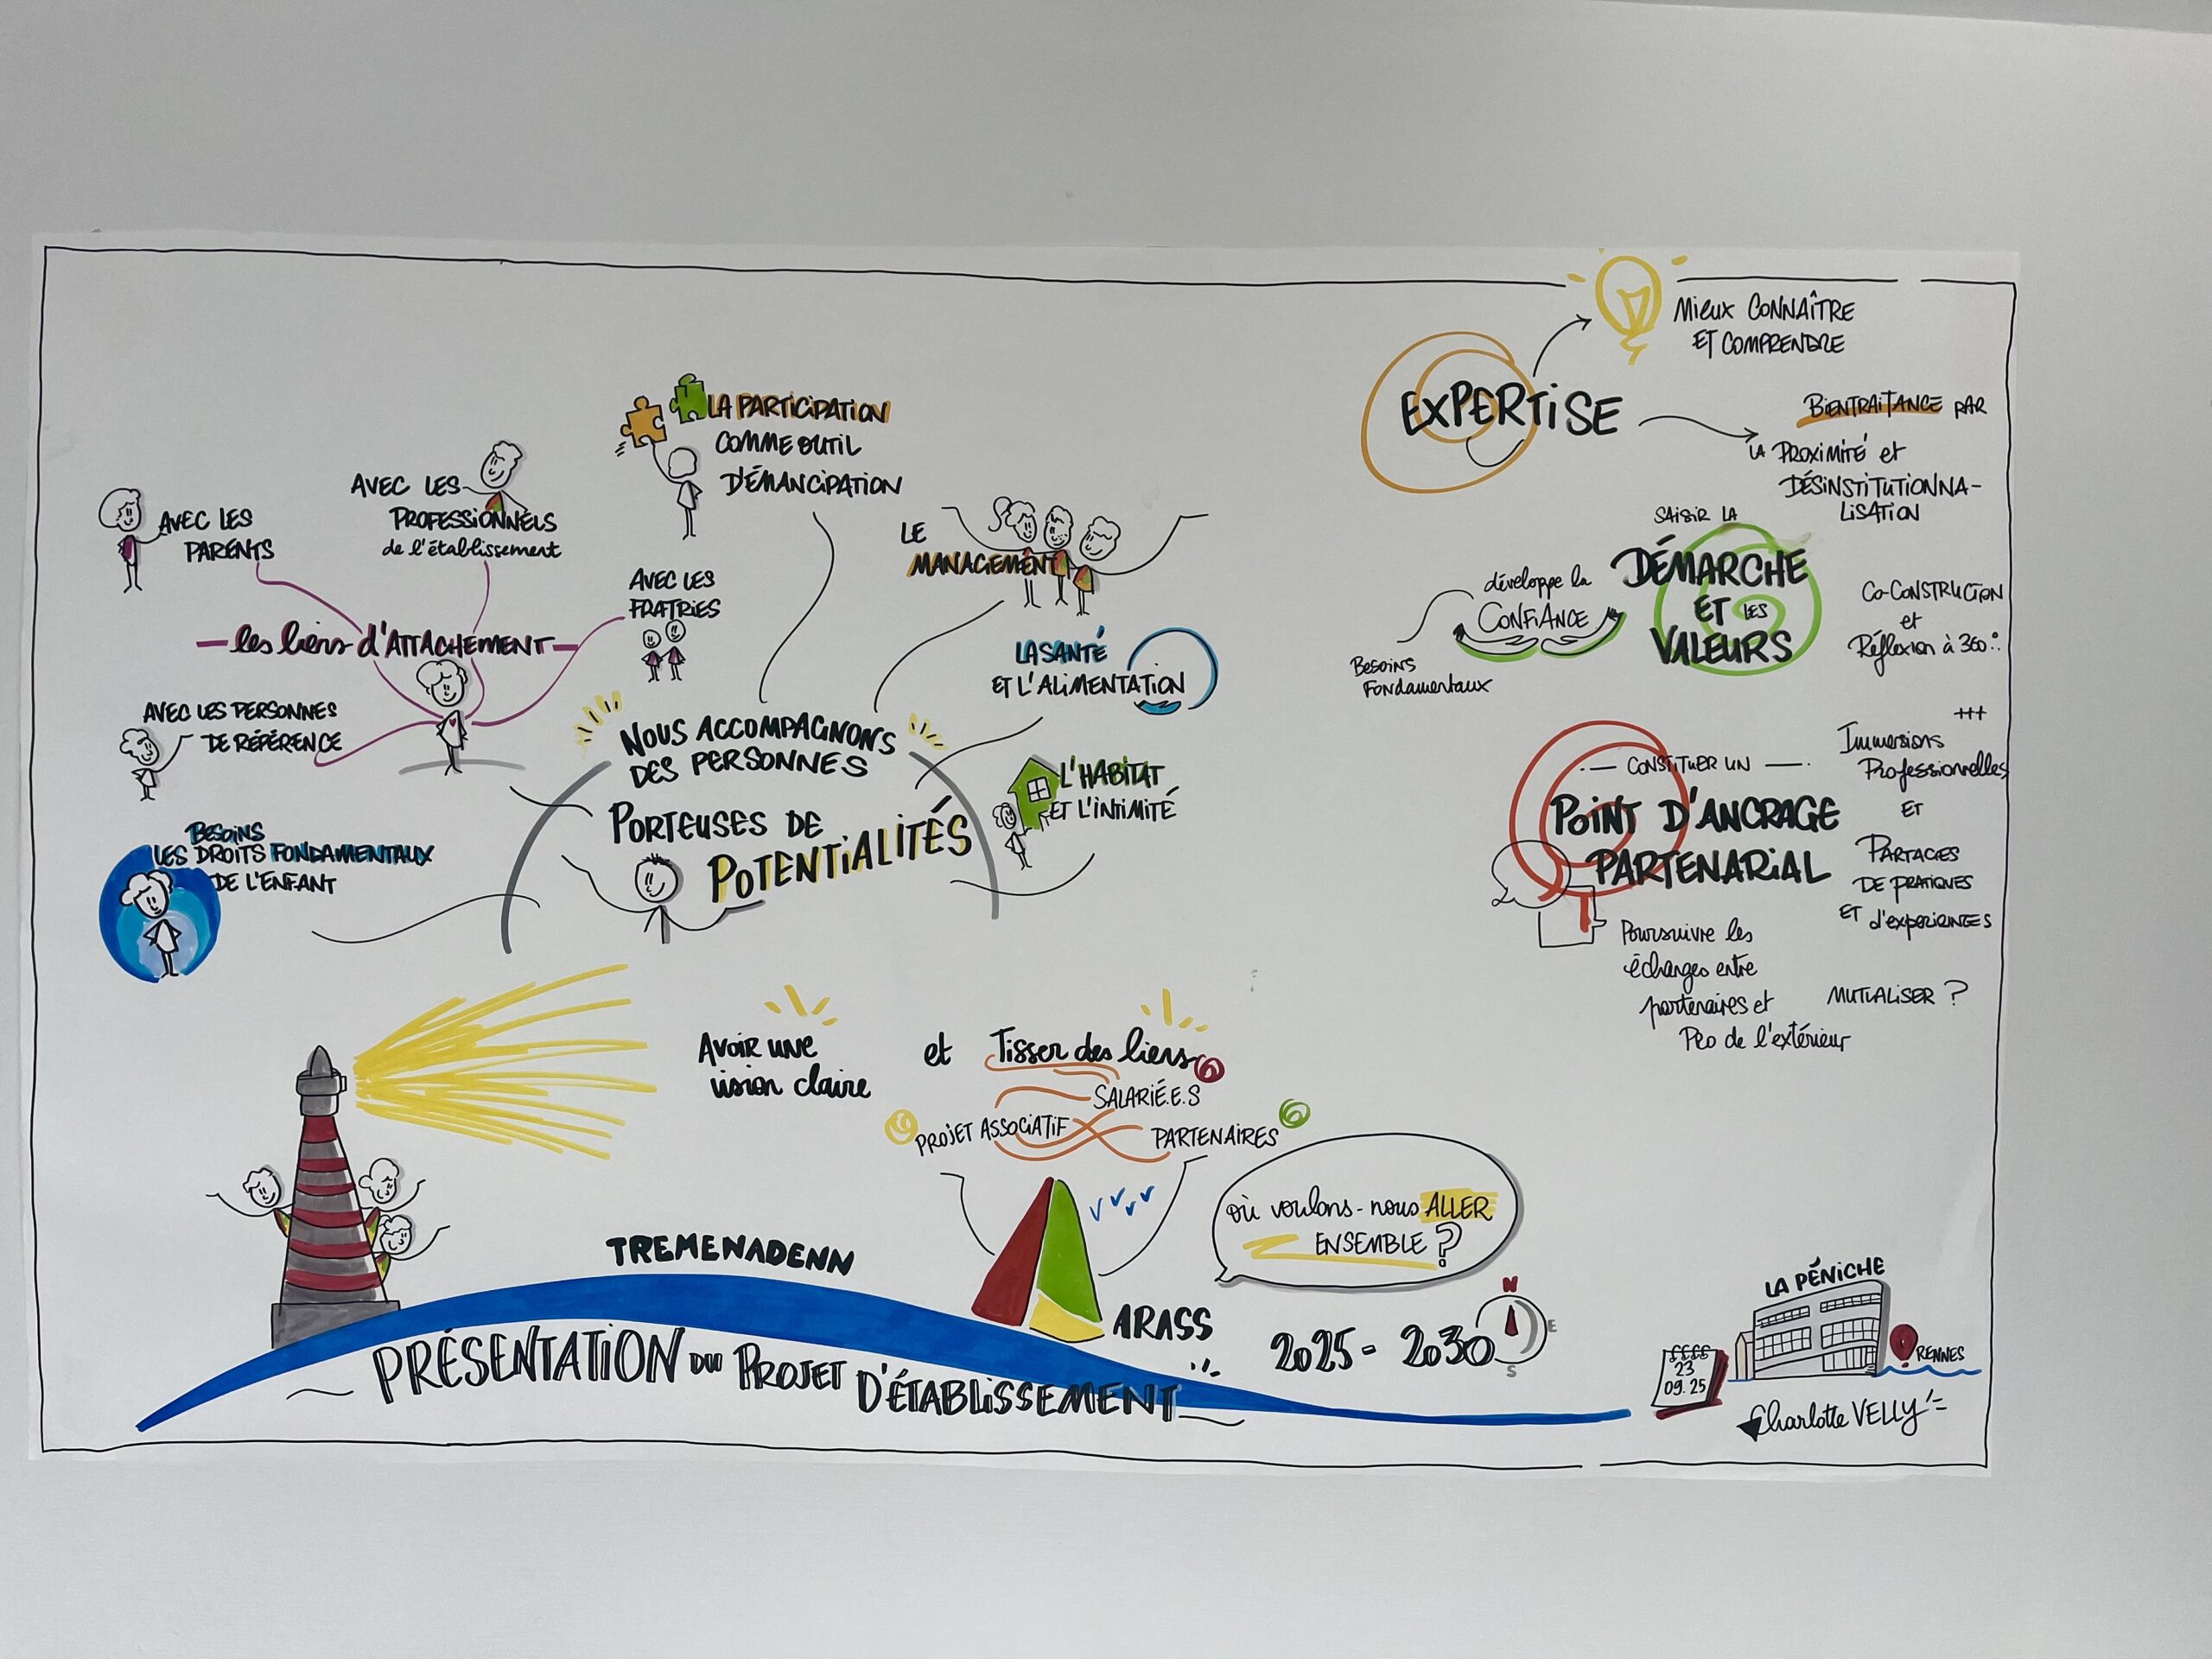 LA PARTICIPATION
COMME OUTIL
D'ÉMANCIPATION
AVEC LES
PARENTS
AVEC LES
PROFESSIONNELS
de l'établissement
AVEC LES
FRATRIES
les liens d'ATTACHEMENT
AVEC LES PERSONNES
DE RÉFÉRENCE
BESOINS
LES DROITS FONDAMENTAUX
DE L'ENFANT
LE
MANAGEMENT
LA SANTÉ
ET L'ALIMENTATION
L'HABITAT
ET L'INTIMITÉ
NOUS ACCOMPAGNONS
DES PERSONNES
PORTEUSES DE
POTENTIALITÉS
EXPERTISE
MIEUX CONNAÎTRE
ET COMPRENDRE
BIENTRAITANCE PAR
LA PROXIMITÉ et
DÉSINSTITUTIONNA-
LISATION
SAISIR LA
DÉMARCHE
ET LES
VALEURS
développe la
CONFIANCE
BESOINS
FONDAMENTAUX
CO-CONSTRUCTION
et
Réflexion à 360°
+++
Immersions
Professionnelles
ET
PARTAGES
DE PRATIQUES
ET d'EXPERIENCES
MUTUALISER ?
CONSTITUER UN
POINT D'ANCRAGE
PARTENARIAL
Poursuivre les
échanges entre
partenaires et
Pro de l'extérieur
Avoir une
vision claire
et Tisser des liens
SALARIÉ.E.S
PROJET ASSOCIATIF
PARTENAIRES
où voulons-nous ALLER
ENSEMBLE ?
TREMENADENN
ARASS
2025 - 2030
N
E
S
PRÉSENTATION DU PROJET D'ÉTABLISSEMENT
LA PÉNICHE
RENNES
23
09.25
Charlotte VELLY